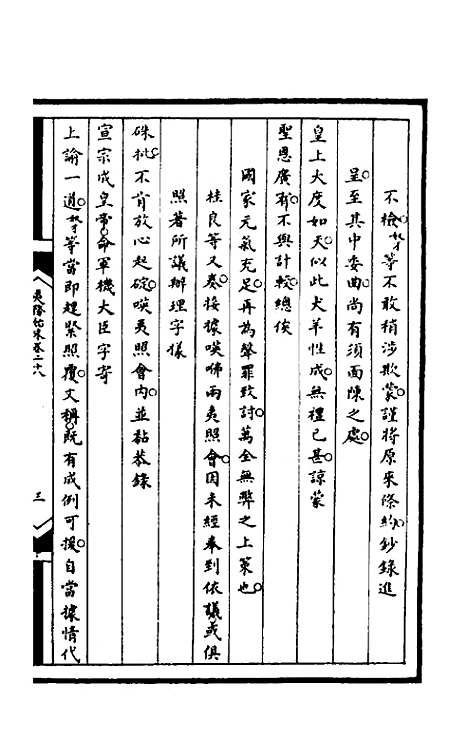 不檢奴才等不敢稍涉欺蒙謹將原來條約鈔錄進
呈至其中委曲尚有須面陳之處
皇上大度如天似此犬羊性成無禮已甚諒蒙
聖恩廣有不與計較總俟
國家元氣充足再為聲罪致討萬全無弊之上策也
桂良等又奏接據嘆咈兩夷照會因未經奉到依議或俱
照著所議辦理字樣
硃批不肯放心起碇嘆夷照會內並黏恭錄
宣宗成皇帝命軍機大臣字寄
上諭一道奴才等當即趕緊照覆文稱既有成例可援自當據情代
三